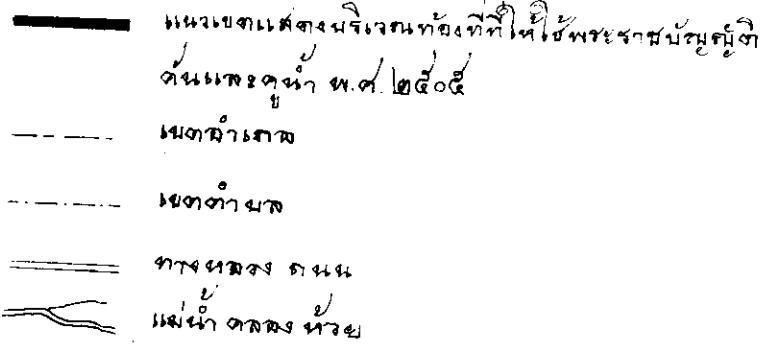 แนวเขตแสดงบริเวณท้องที่ที่ให้ใช้พระราชบัญญัติ
คันและคูน้ำ พ.ศ. ๒๕๐๕
เขตอำเภอ
เขตตำบล
ทางหลวง ถนน
แม่น้ำ คลอง ห้วย